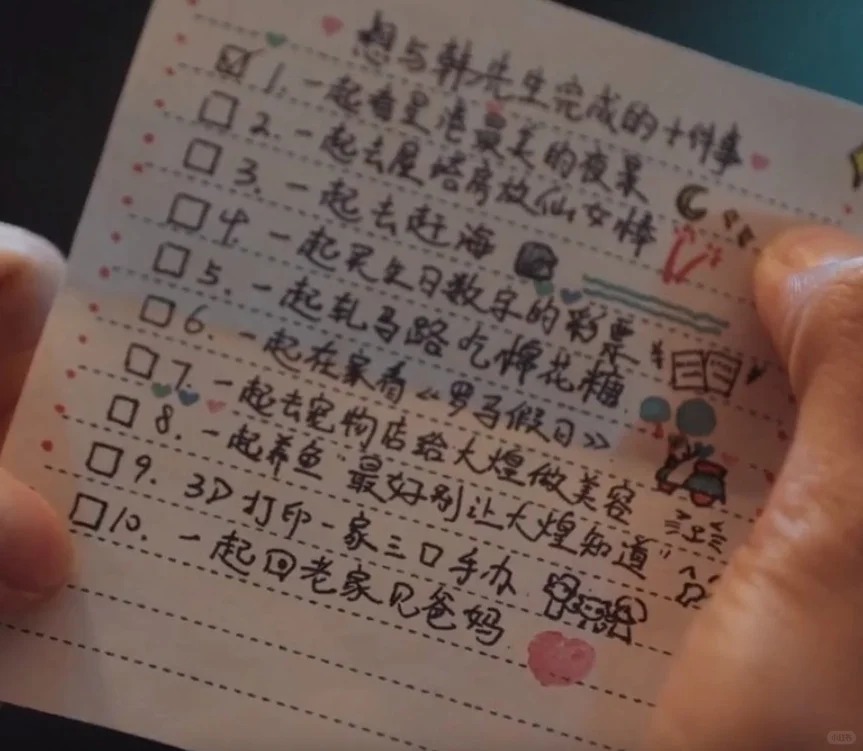 想与韩先生完成的十件事
☑ 1. 一起看星港最美的夜景
☐ 2. 一起去星塔底放仙女棒
☐ 3. 一起去赶海
☐ 4. 一起买生日数字的彩票
☐ 5. 一起轧马路吃棉花糖
☐ 6. 一起在家看《罗马假日》
☐ 7. 一起去宠物店给大煌做美容
☐ 8. 一起养鱼"最好别让大煌知道"
☐ 9. 3D打印一家三口手办
☐ 10. 一起回老家见爸妈
小红书